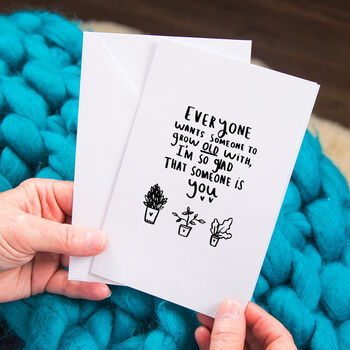 EVERYONE
WANTS SOMEONE TO
GROW OLD WITH,
I'M SO GLAD
THAT SOMEONE IS
YOU